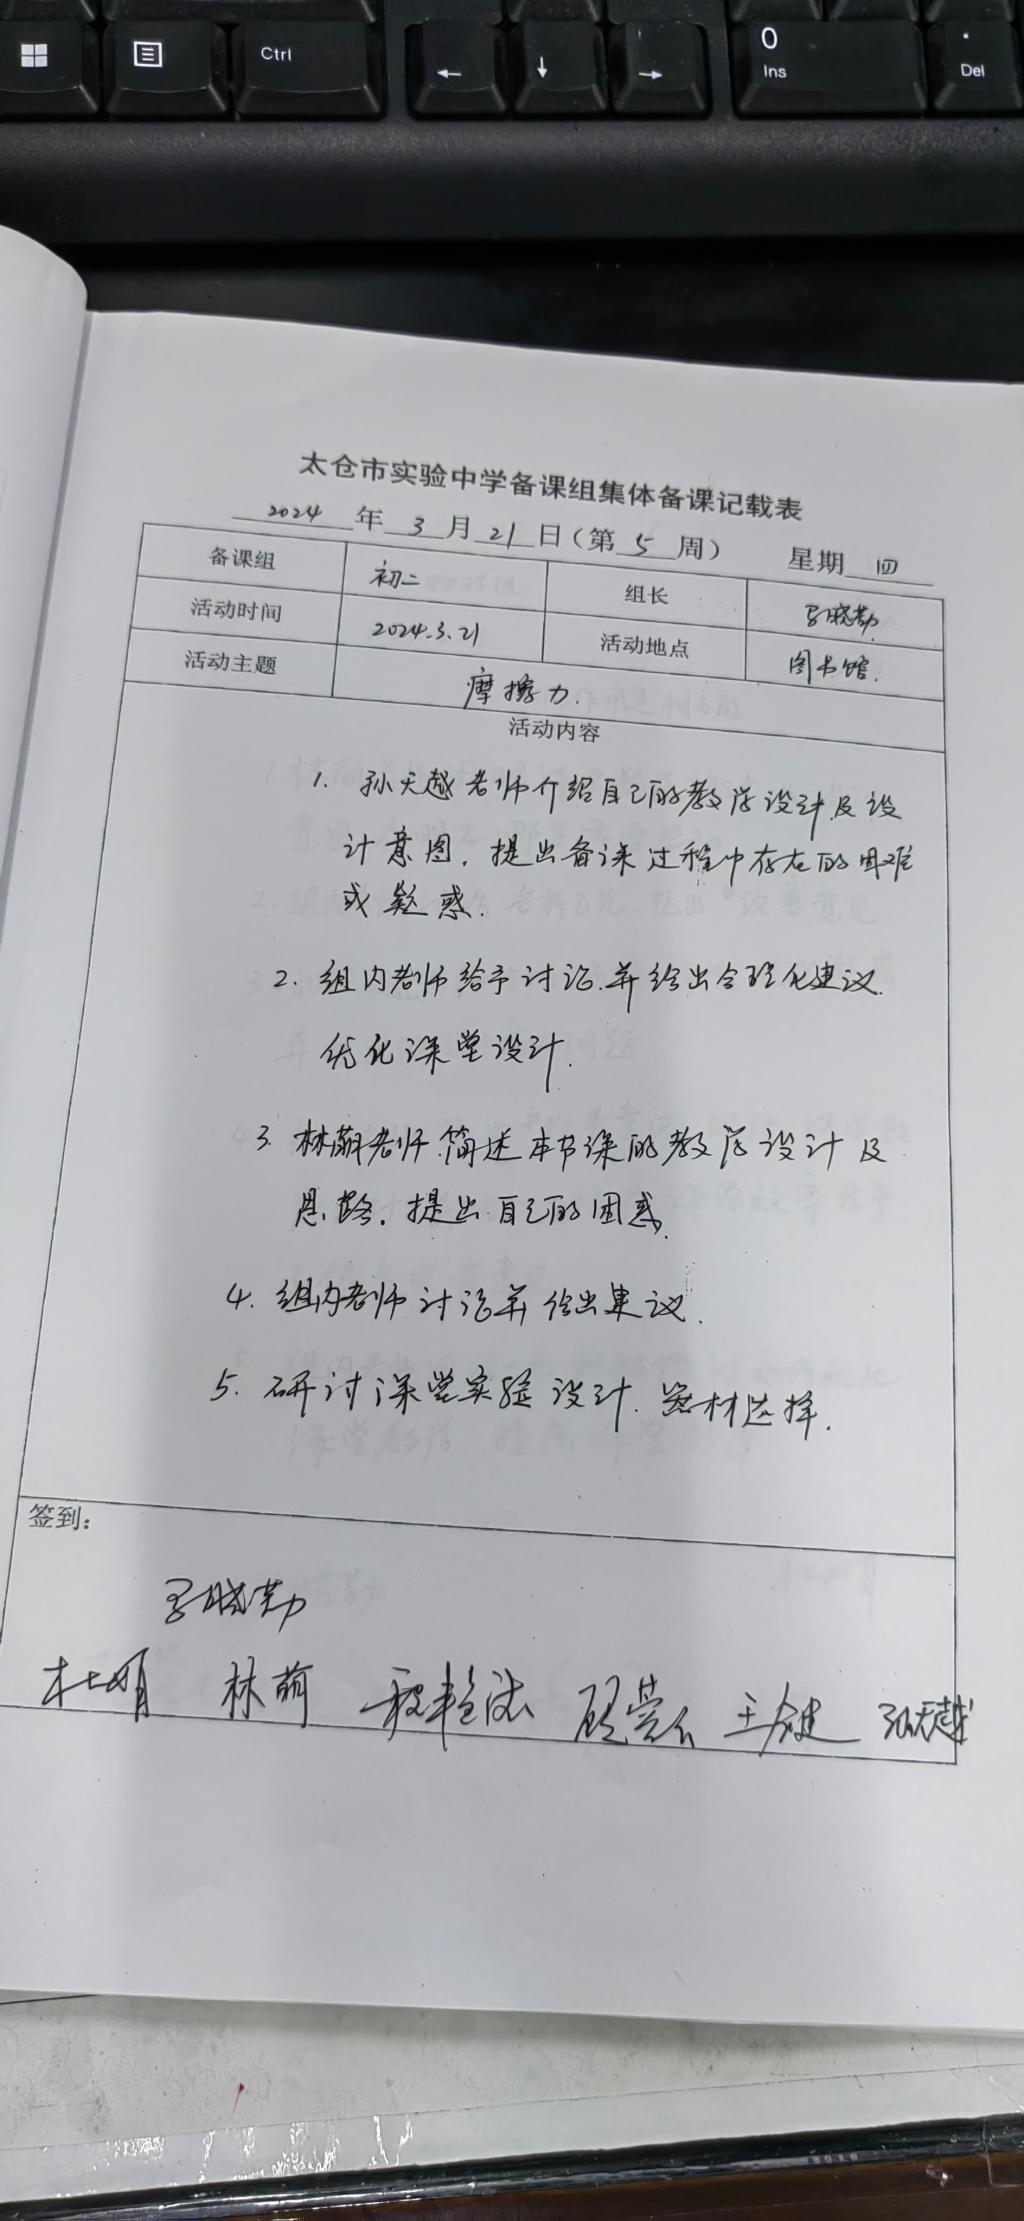 Ctrl
0
Ins
.
Del
太仓市实验中学备课组集体备课记载表
2024 年 3 月 21 日（第 5 周） 星期 四
备课组 初二 组长 晓勤
活动时间 2024.3.21 活动地点 图书馆.
活动主题 摩擦力.
活动内容
1. 孙天越老师介绍自己的教学设计及设
计意图. 提出备课过程中存在的困难
或疑惑.
2. 组内老师给予讨论.并给出合理化建议.
并优化课堂设计.
3. 林萌老师.简述本节课的教学设计及
思路. 提出自己的困惑.
4. 组内老师讨论并给出建议.
5. 研讨课堂实验设计. 器材选择.
签到：
晓勤
杜娟 林萌 王健 孙天越